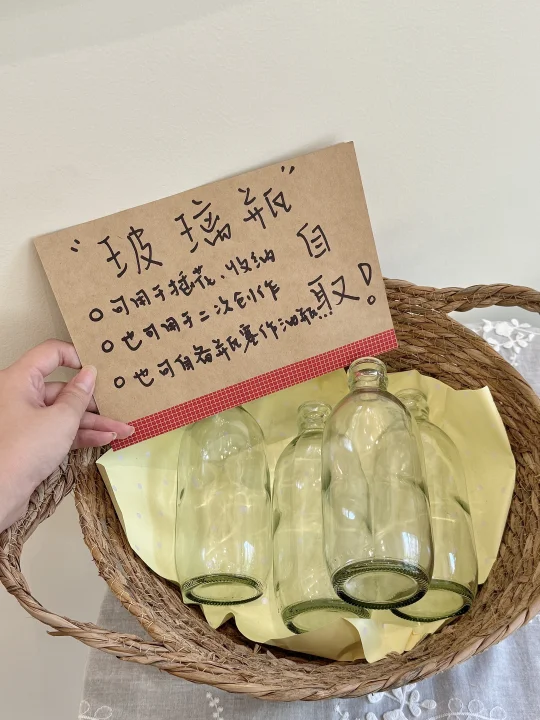 “玻璃瓶”
自取!
○可用于插花、收纳
○也可用于二次创作
○也可自备瓶塞作油瓶...